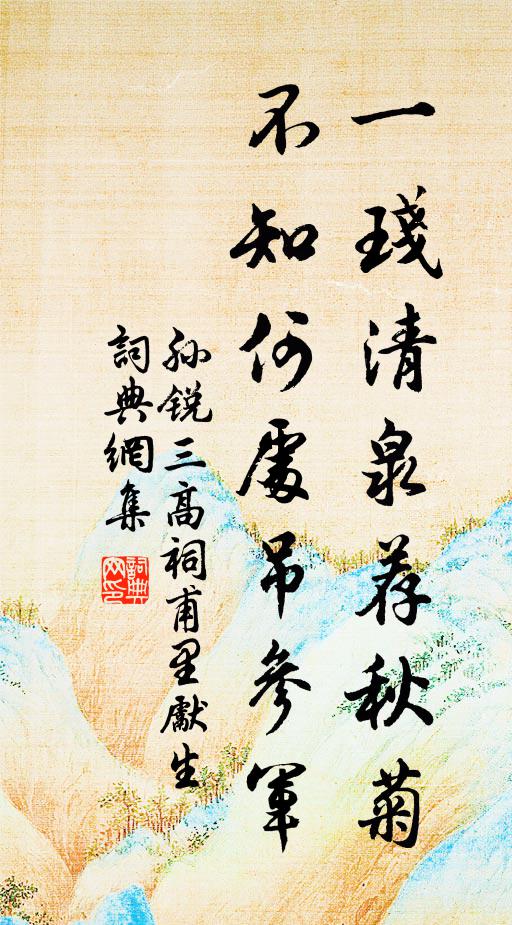 一琖清泉荐秋菊
不知何處吊參軍
孙锐三高祠甫里獻生
詞典網集
詞典网印